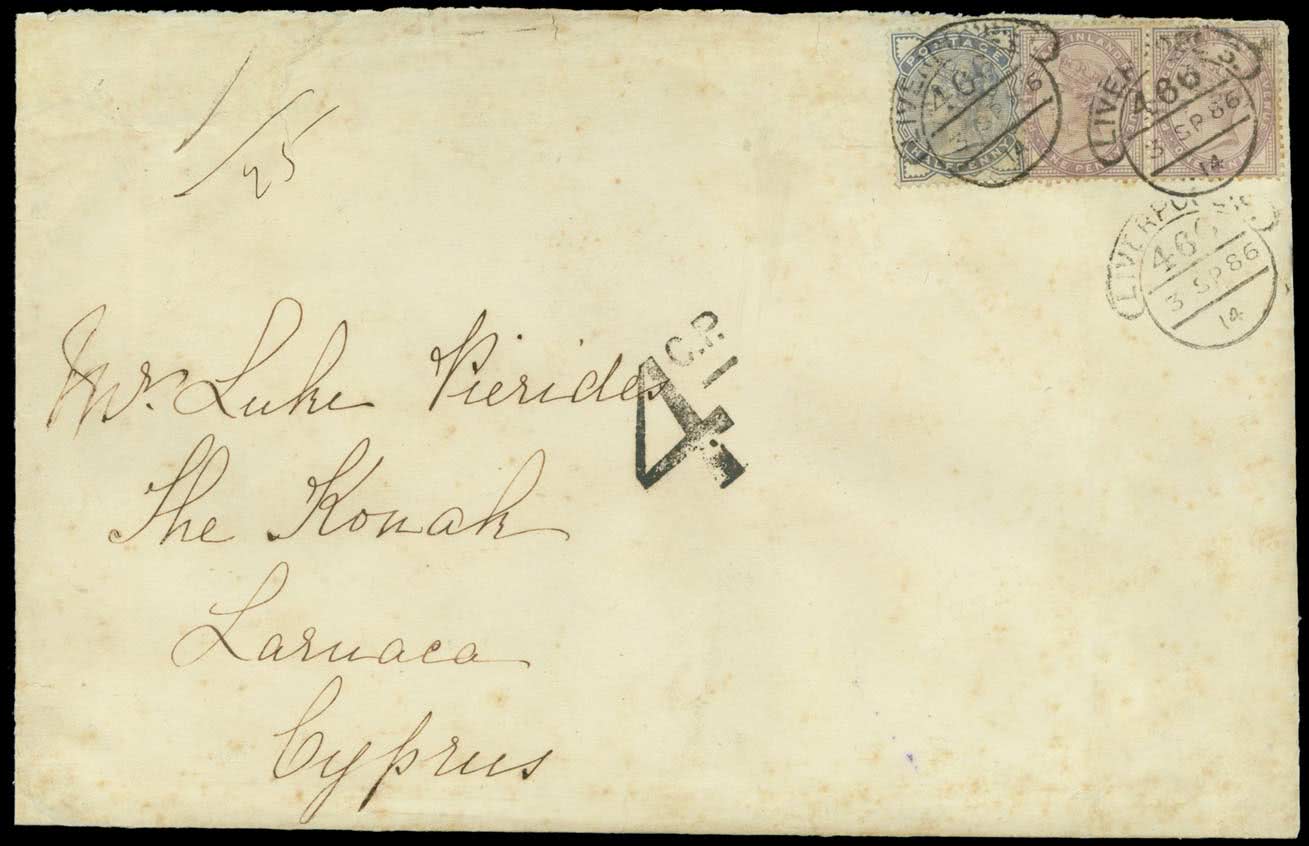 POSTAGE
HALFPENNY
INLAND
ONE PENNY
LIVERPOOL
466
3 SP 86
14
LIVERPOOL
466
3 SP 86
14
1/25
C.P.
4
Mr. Luke Pierides
The Konak
Larnaca
Cyprus